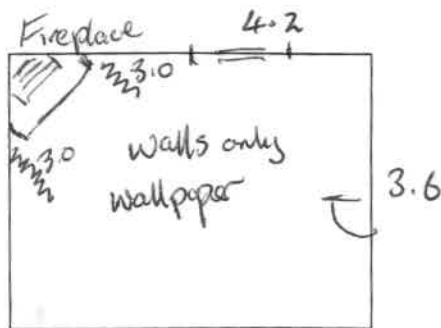 Fireplace
4.2
3.0
3.0
Walls only
wallpaper
3.6